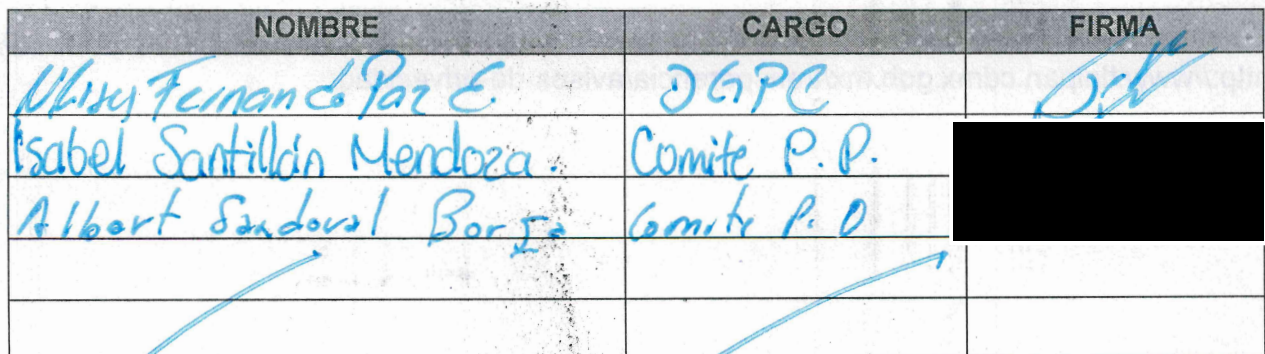 NOMBRE CARGO FIRMA
Fernando Paz E.
Isabel Santillán Mendoza. Comite P. P.
Albert Sandoval Comite P. P